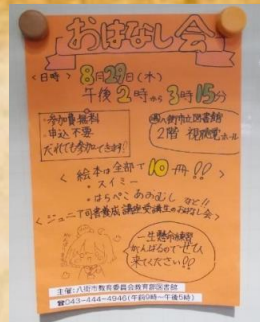 おはなし会
<日時> 8月29日(水)
午後2時から3時15分
・参加費無料
・申込不要
だれでも参加できます!
場所 八街市立図書館
2階 視聴覚ホール
<絵本は全部で10冊!!
・スイミー
・はらぺこあおむし など!!
<ジュニア司書養成講座受講生のおはなし会>
一生懸命練習
がんばるのでぜひ
来てください!!
主催:八街市教育委員会教育部図書館
☎043-444-4946(午前9時~午後5時)